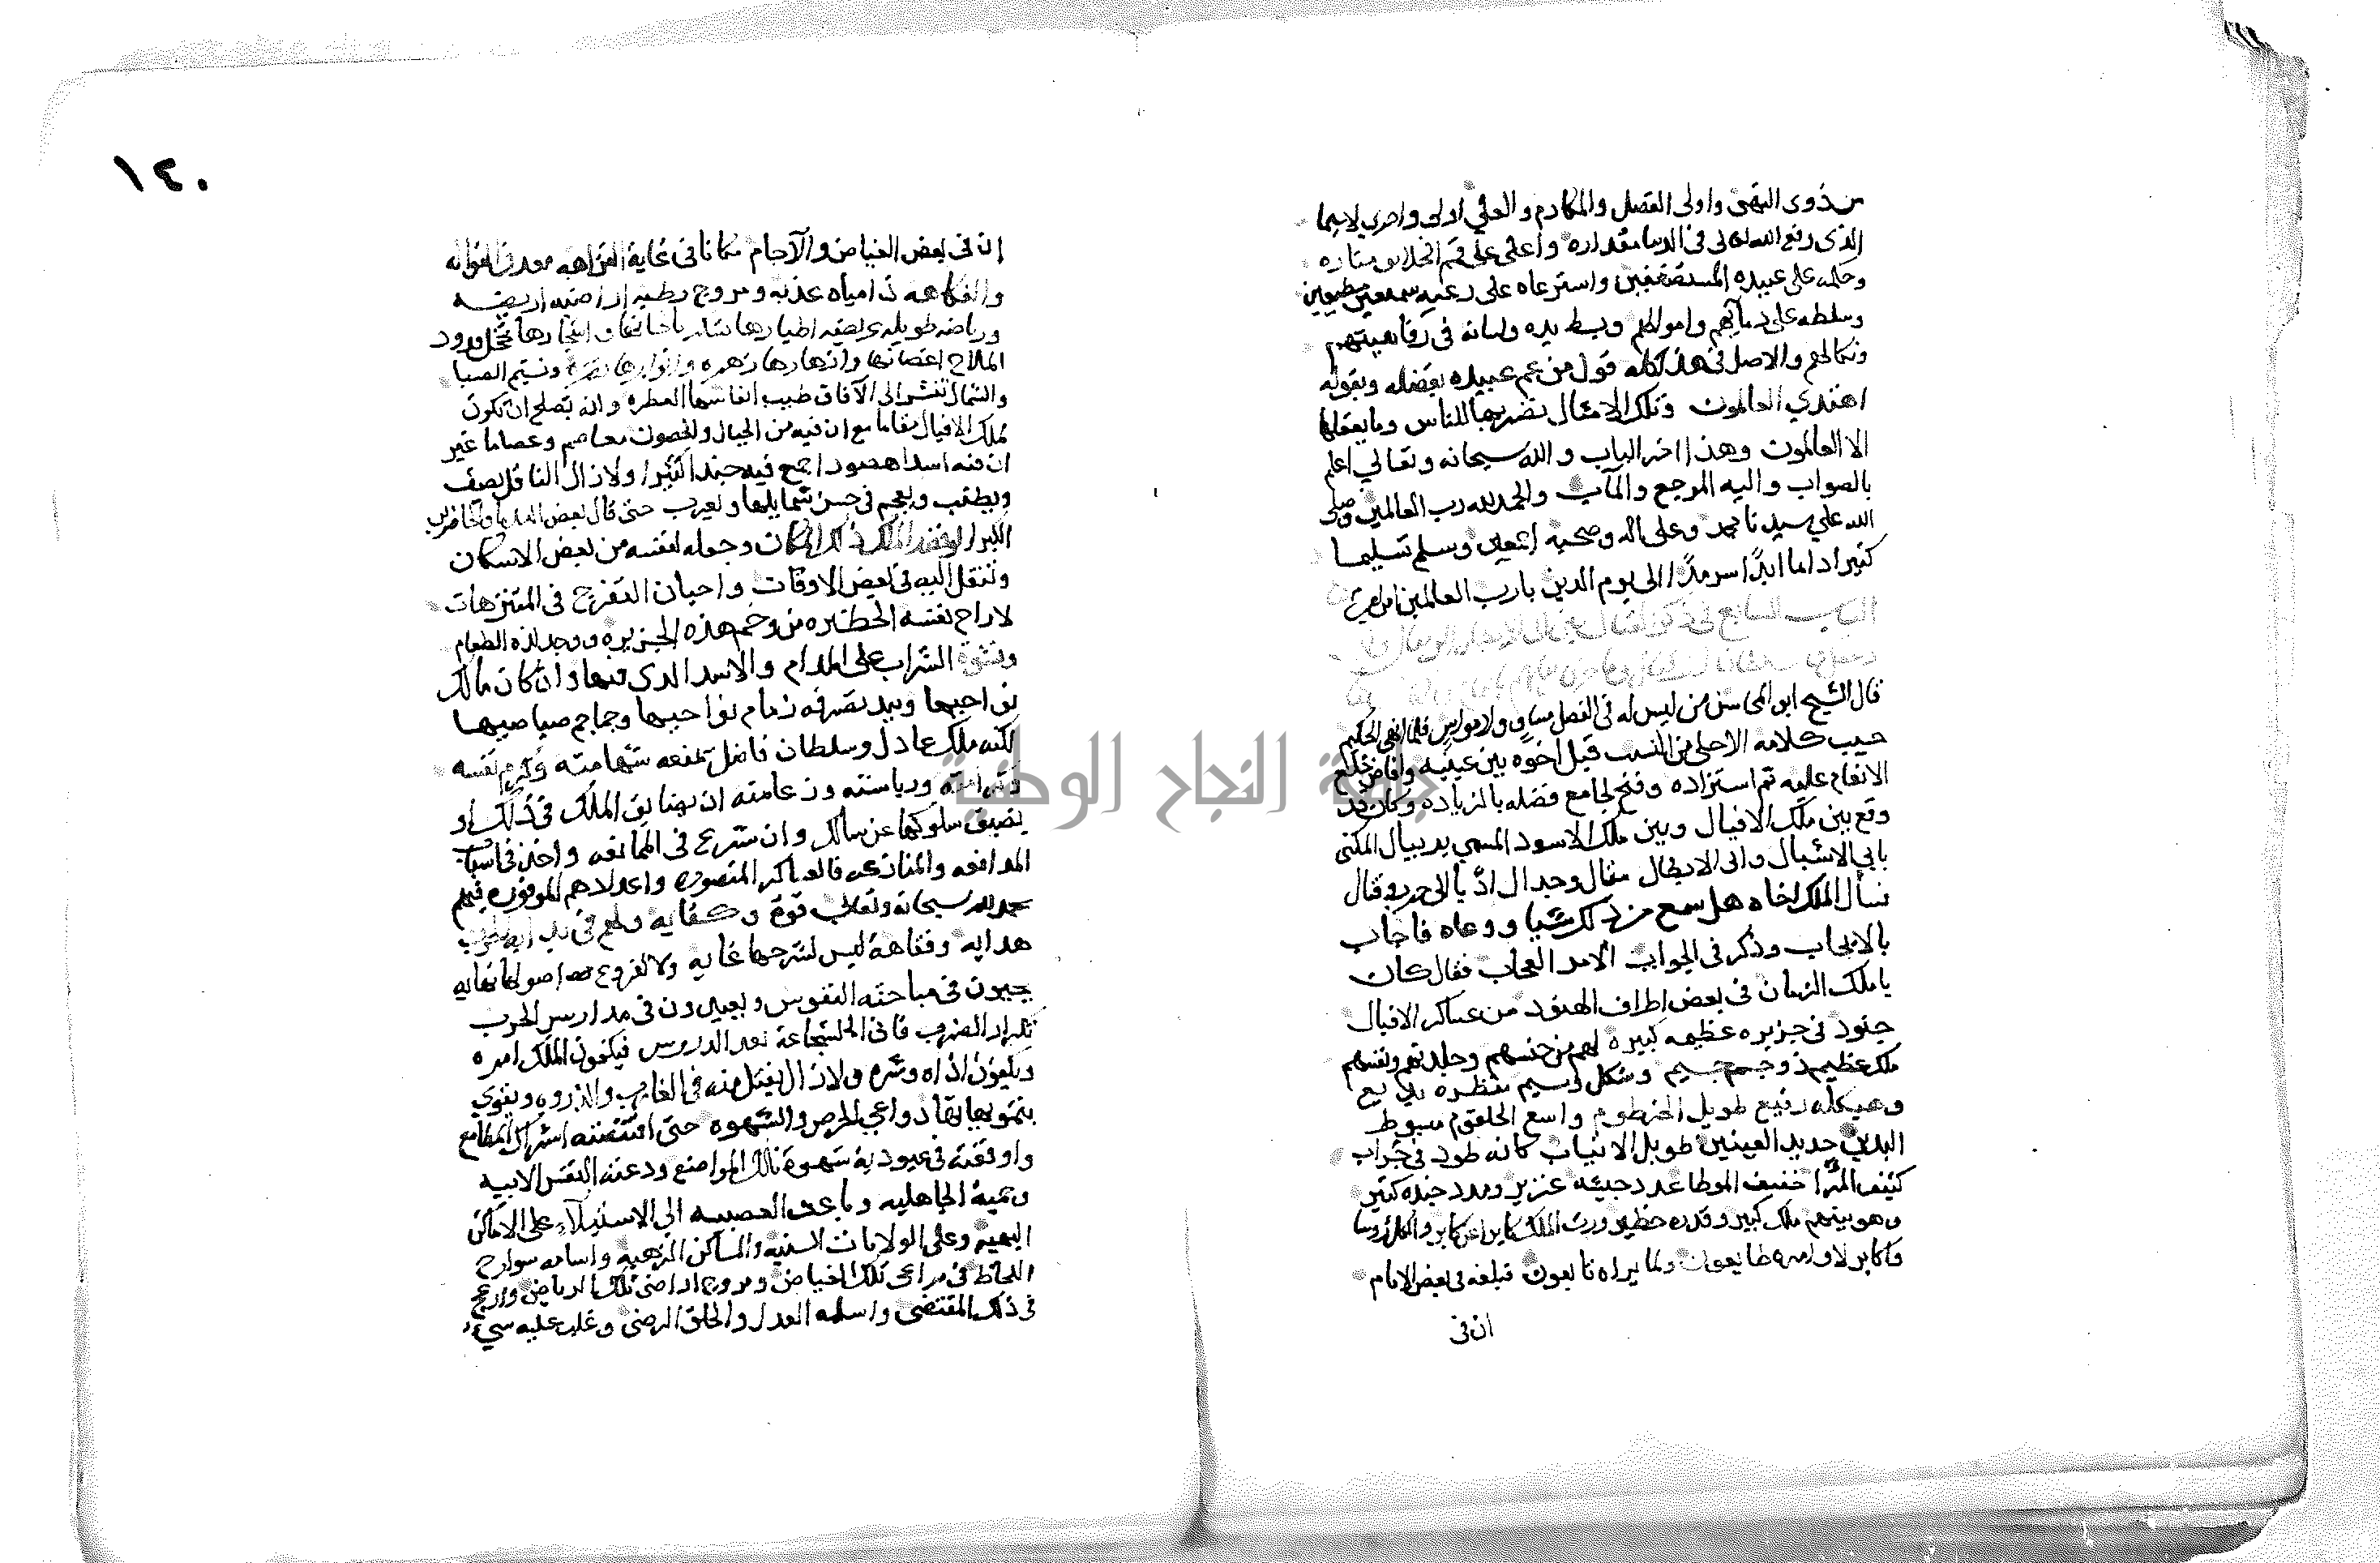 من ذوى النهى واولى الفضل والمكارم والعلى اولى واحرى لاسيما
الذى رفع الله تعالى فى الدنيا مقداره واعلى على قمم الخلايق مناره
وحكمه على عبيده المستضعفين واسترعاه على رعيه سميعين مطيعين
وسلطه على دمايهم واموالهم وبسط يده ولسانه فى رفاهيتهم
ونكالهم والاصل فى هذا كله قول من عم عبيده بفضله وبقوله
اهتدي العالمون وتلك الامثال نضربها للناس وما يعقلها
الا العالمون وهذا اخر الباب والله سبحانه وتعالي اعلم
بالصواب واليه المرجع والمآب والحمد لله رب العالمين وصلى
الله علي سيدنا محمد وعلى اله وصحبه اجمعين وسلم تسليما
كثيرا دائما ابدًا سرمدًا الى يوم الدين يا رب العالمين امين
قال الشيخ ابو المحاسن من ليس له فى الفضل مساوٍ ولا مواسٍ فلما انهى الحكيم
حبيب كلامه الاحلى من النسب قبل اخوه بين عينيه وافاض خلع
الانعام عليه ثم استزاده وفتح لجامع فضله بالزياده وكان قد
وقع بين ملك الافيال وبين ملك الاسود المسمي بدبيال المكنى
بابي الاشبال وابى الابطال مقال وجدال ادّيا الى حرب وقتال
فسأل الملك اخاه هل سمع من ذلك شيا ووعاه فاجاب
بالايجاب وذكر فى الجواب الامر العجاب فقال كان
يا ملك الزمان فى بعض اطراف الهنود من عساكر الافيال
جنود فى جزيره عظيمه كبيره لهم من جنسهم وجلدتهم ونفسهم
ملك عظيم ذو جسم جسيم وشكل وسيم منظره بديع
وهيكله رفيع طويل الخرطوم واسع الحلقوم مبسوط
البدن حديد العينين طويل الانياب كانه طود فى جراب
كثيف المرآ خفيف الموطا عدد جيشه غزير ومدد جنده كثير
وهو بينهم ملك كبير وقدره خطير ورث الملك كابرا عن كابر والكل روسا
واكابر لاوامره طايعون ولما يراه تابعون فبلغه فى بعض الايام
ان فى
١٤٠
ان فى بعض الغياض والآجام مكانا فى غاية النزاهه معدن الفواكه
والفكاهه ذا مياه عذبه ومروج رطبه اراضيه اريضه
ورياضه طويله عريضه اطيارها تشدو باغانيها واشجارها تخجل قدود
الملاح اغصانها وازهارها زهره وانوارها ونسيم الصبا
والشمال تنشر الى الآفاق طيب انفاسها العطره وانه يصلح ان تكون
لملك الافيال مقاما مع ان فيه من الجبال والحصون معاصم وعصاما غير
ان فيه اسدا هصورا جمع فيه جندا كثيرا ولازال الناقل يصف
ويطنب ويعجم فى حسن شمايلها ويعرب حتى قال بعض الندما والحاضرين
الكبرا لو قصد الملك ذلك المكان وجعله لنفسه من بعض الاسكان
وتنقل اليه فى بعض الاوقات واحيان التفرج فى المتنزهات
لاراح نفسه الخطيره من وخم هذه الجزيره ووجد لذة الطعام
ونشوة الشراب على المدام والاسد الذى فيها وان كان مالك
نواحيها وبيد تصرفه زمام نواحيها وجماجم صياصيها
لكنه ملك عادل وسلطان فاضل تمنعه شهامته وكرم نفسه
ورياسته وزعامته ان يضايق الملك فى ذلك او
يضيق سلوكها عن سالك وان شرع فى الممانعه واخذ فى اسباب
المدافعه والمنازعه فالعساكر المنصوره واعدادهم الموفوره فيهم
بحمد الله سبحانه وتعالى قوة وكفايه ولهم فى
هدايه وفقاهة ليس لشرحها غايه ولا لفروع اصولها نهايه
يجيدون فى مباحثه النفوس ويعيدون فى مدارس الحرب
تكرار الضرب فانى الشجاعة تعد الدروس فيكفون الملك امره
ويكفون اذاه وشره ولازال يفتل منه فى الغارب والذروه ويقوي
بتمويهاتها دواعى الحرص والشهوه حتى اقتنصته اشراك المطامع
واوقعته فى عبودية شهوة تلك المواضع ودعته النفس الابيه
وحمية الجاهليه وباعث العصبيه الي الاستيلآء على الاماكن
البهيه وعلى الولايات السنيه والمساكن الزهيه واسامه سوارح
اللحاظ فى مراعى تلك الغياض ومروج اراضى تلك الرياض وازعج
فى ذلك المقتضى واسلمه العدل والخلق الرضى وغلب عليه سيء
جامعة النجاح الوطنية